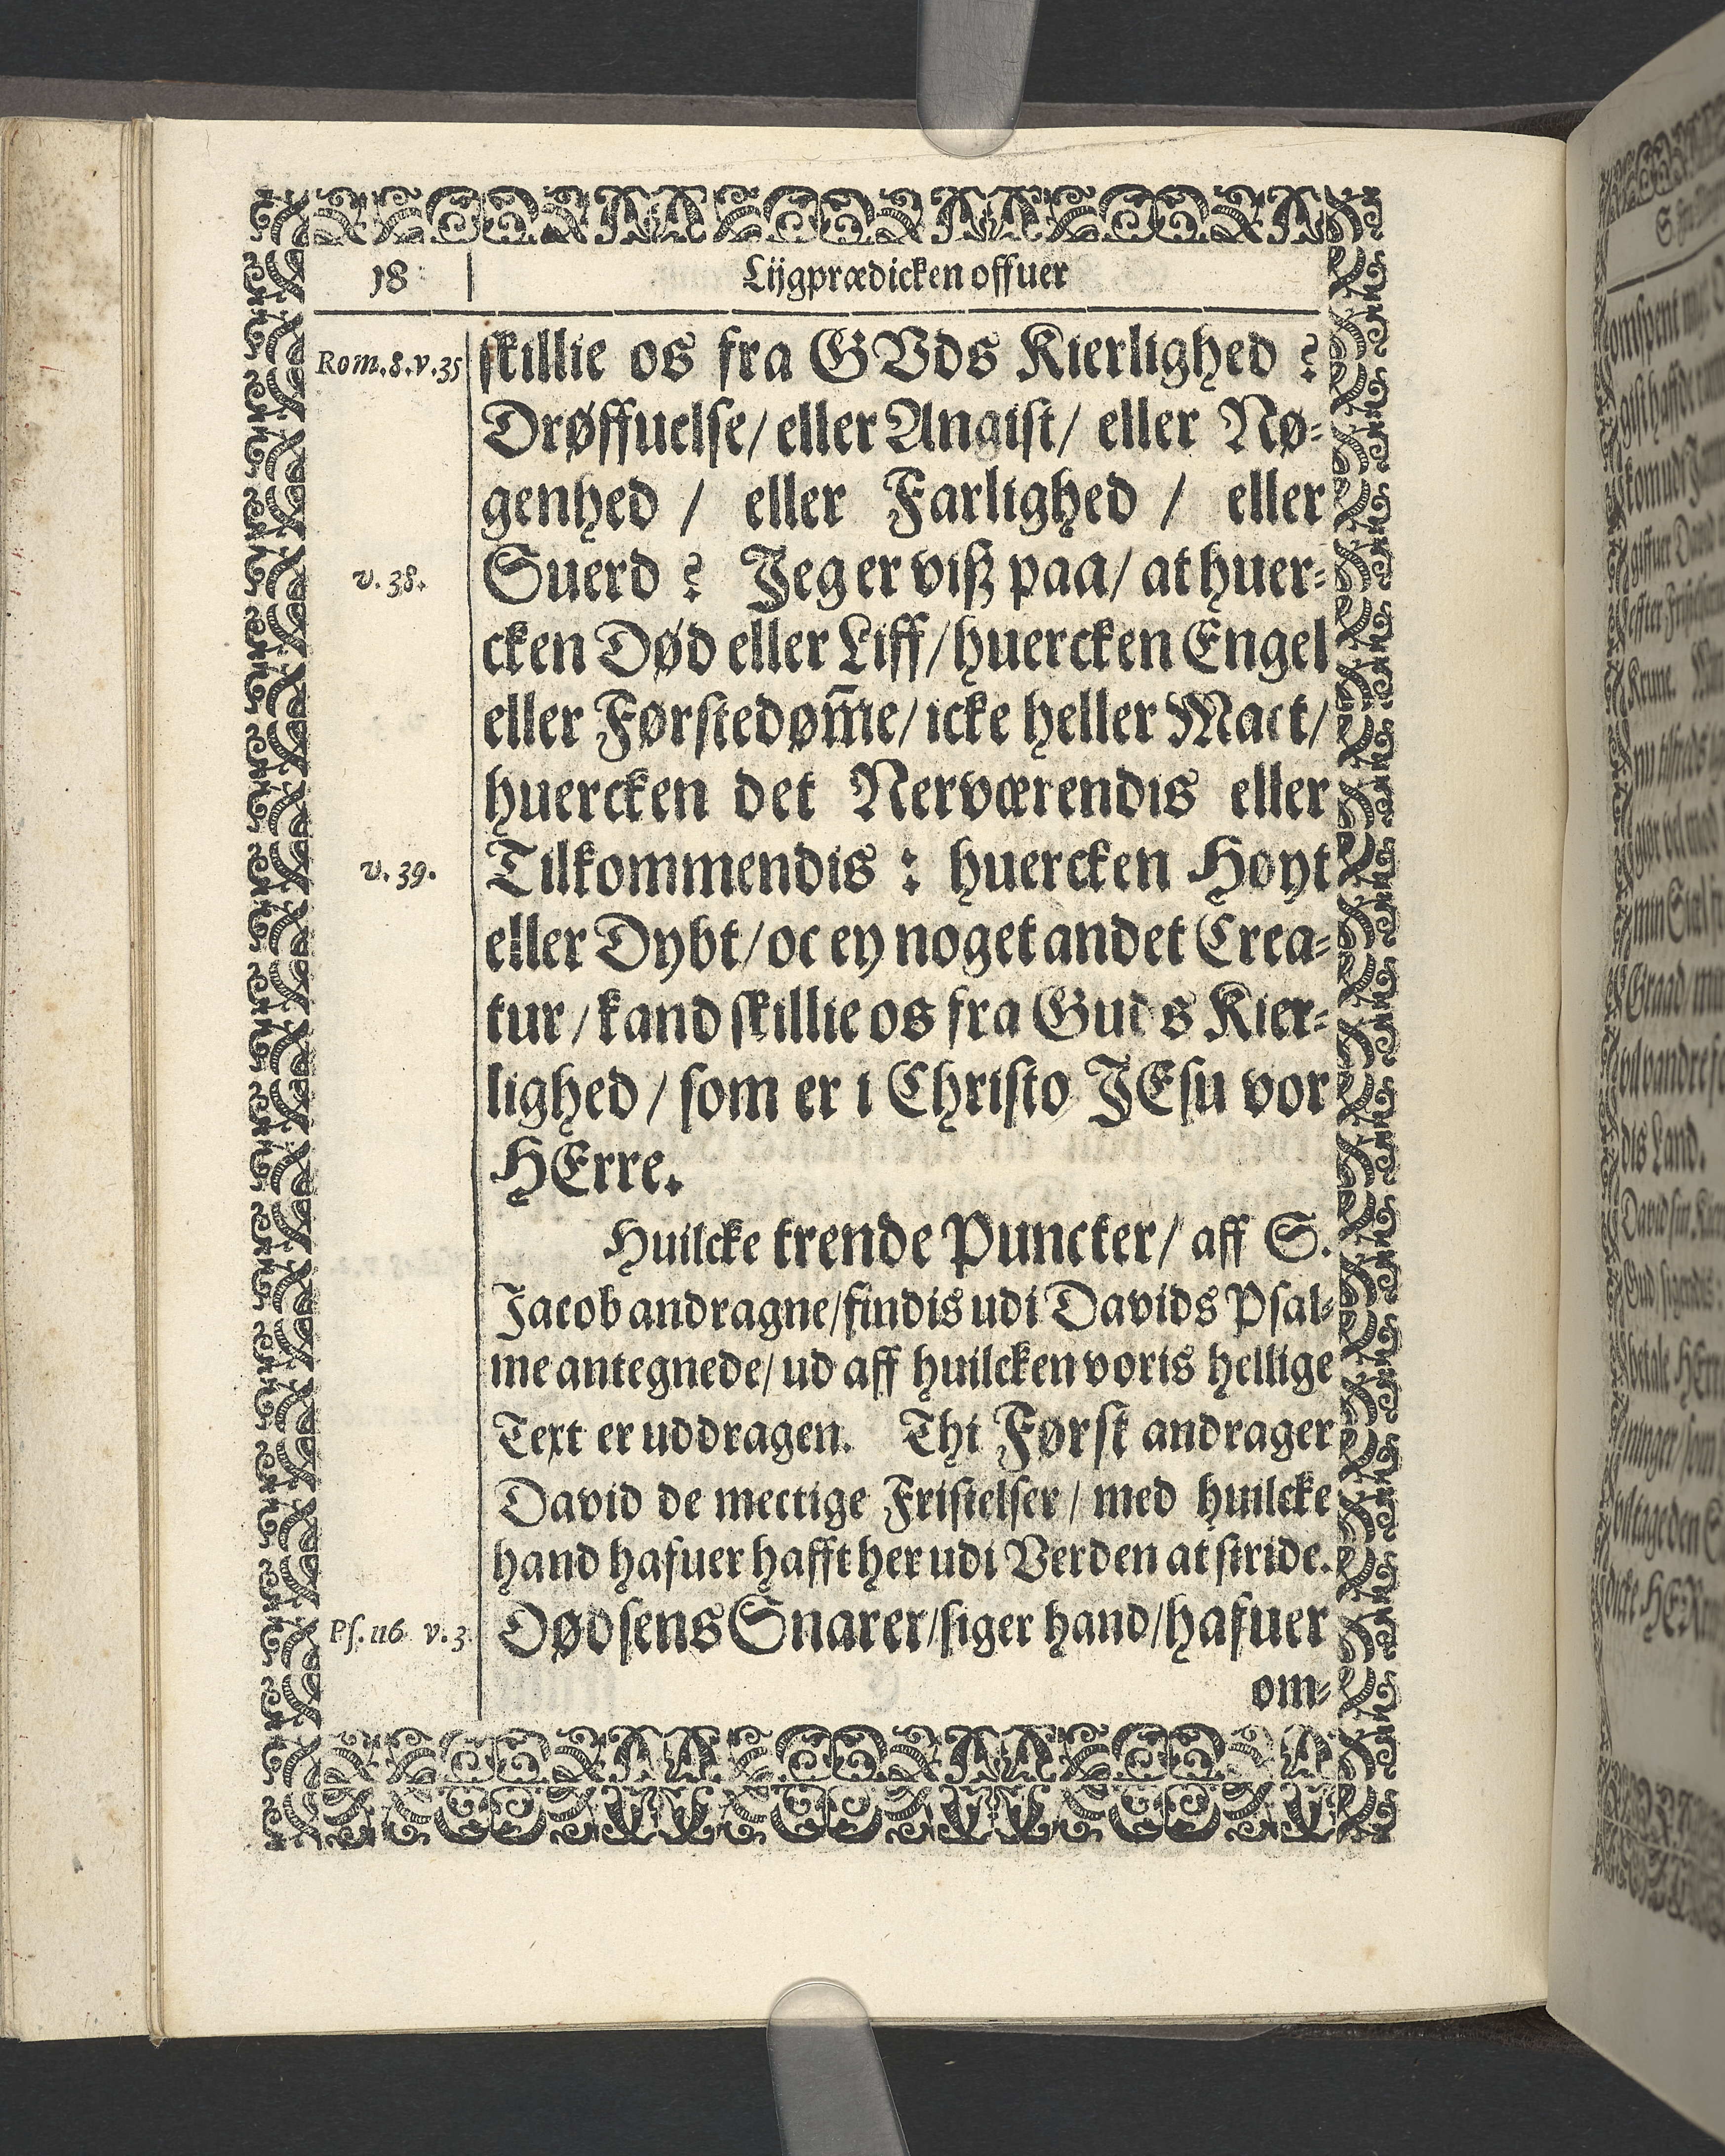 18
Lijgprædicken offuer
Rom.8.v.35
skillie os fra GVds Kierlighed ?
Drøffuelse/ eller Angist/ eller Nø-
genhed / eller Farlighed / eller
v. 38.
Suerd ? Jeg er viß paa/ at huer-
cken Død eller Liff/ huercken Engel
eller Førstedøm̃e/ icke heller Mact/
huercken det Nerværendis eller
v. 39.
Tilkommendis : huercken Hoyt
eller Dybt/ oc ey noget andet Crea-
tur/ kand skillie os fra Guds Kier-
lighed / som er i Christo JEsu vor
HErre.
Huilcke trende Puncter/ aff S.
Jacob andragne/ findis udi Davids Psal-
me antegnede/ ud aff huilcken voris hellige
Text er uddragen. Thi Først andrager
David de mectige Fristelser/ med huilcke
hand hafuer hafft her udi Verden at stride.
Ps. 116 v.3
Dødsens Snarer/ siger hand/ hafuer
om-